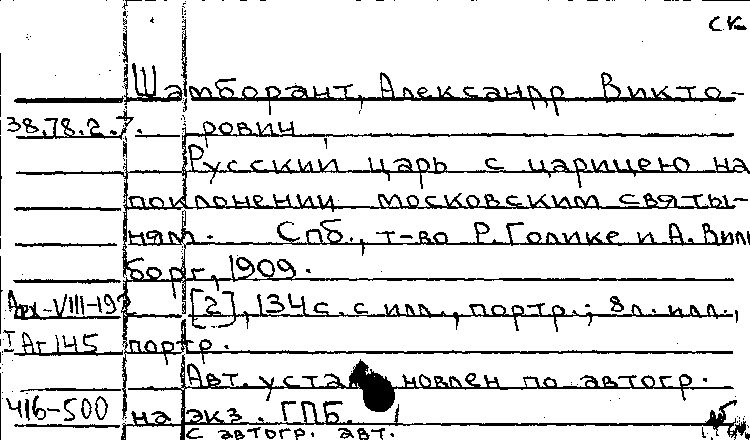 СК
Шамборант, Александр Викто-
38.78.2.7. рович
Русский царь с царицею на
поклонении московским святы-
ням. Спб., т-во Р. Голике и А. Виль
борг, 1909.
Арх-VIII-192 [2], 134 с. с илл., портр.; 8 л. илл.,
I Аг 145 портр.
Авт. установлен по автогр.
416-500 на экз. ГПБ.
с автогр. авт.